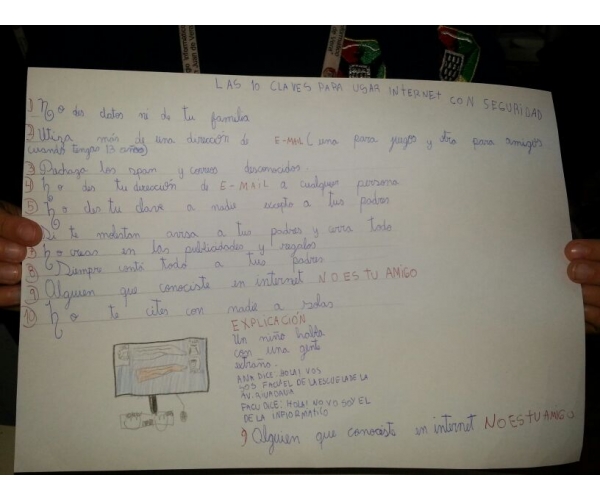 LAS 10 CLAVES PARA USAR INTERNET CON SEGURIDAD
1) No des datos ni de tu familia
2) Utiliza más de una dirección de E-MAIL (una para juegos y otra para amigos
cuando tengas 13 años)
3) Rechaza los spam y correos desconocidos.
4) No des tu dirección de E-MAIL a cualquier persona
5) No des tu clave a nadie excepto a tus padres
Si te molestan avisa a tus padres y cerra todo
No creas en las publicidades y regalos
8) Siempre contá todo a tus padres
9) Alguien que conociste en internet NO ES TU AMIGO
10) No te cites con nadie a solas
EXPLICACIÓN
Un niño habla
con una gente
extraño.
ANA DICE: HOLA! VOS
SOS FACU EL DE LA ESCUELA DE LA
AV.
FACU DICE: HOLA! NO YO SOY EL
DE LA
9) Alguien que conociste en internet NO ES TU AMIGO